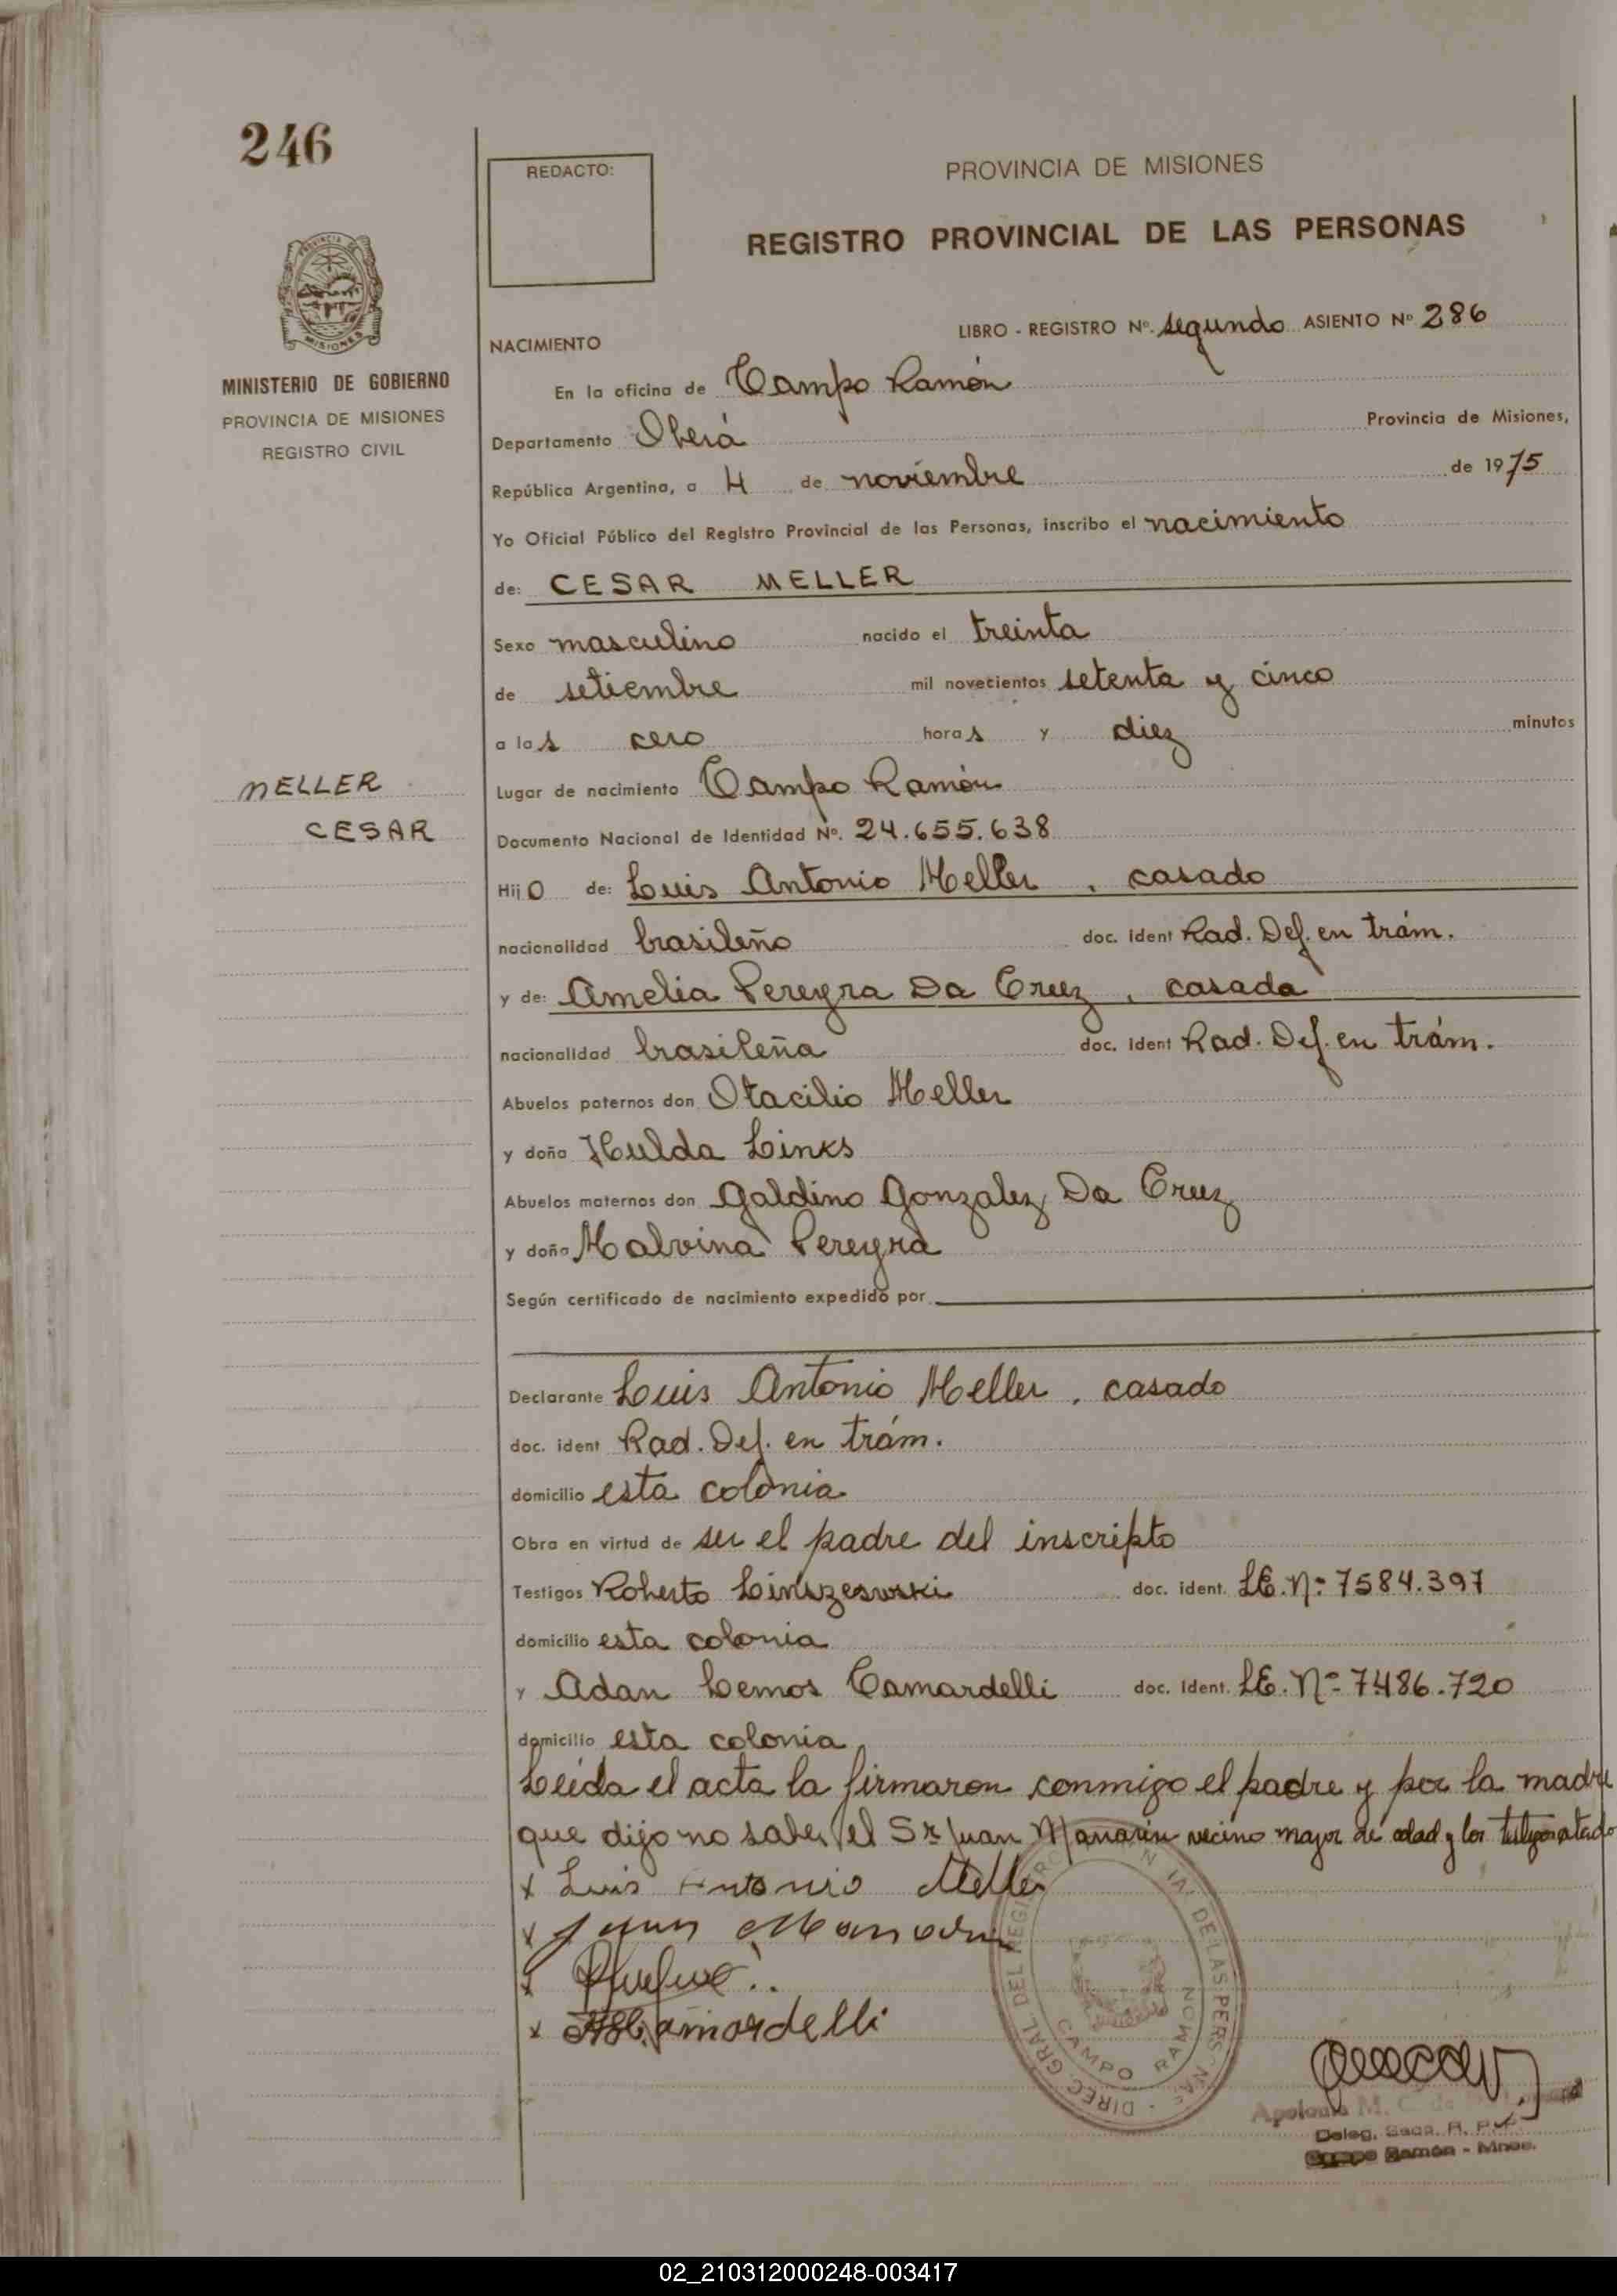 246
REDACTO:
PROVINCIA DE MISIONES
REGISTRO PROVINCIAL DE LAS PERSONAS
MISIONES
MINISTERIO DE GOBIERNO
PROVINCIA DE MISIONES
REGISTRO CIVIL
LIBRO - REGISTRO Nº. segundo ASIENTO Nº 286
NACIMIENTO
En la oficina de Campo Ramón
Departamento Oberá Provincia de Misiones,
República Argentina, a 4 de noviembre de 1975
Yo Oficial Público del Registro Provincial de las Personas, inscribo el nacimiento
de: CESAR MELLER
Sexo masculino nacido el treinta
de setiembre mil novecientos setenta y cinco
a las cero horas y diez minutos
MELLER
CESAR
Lugar de nacimiento Campo Ramón
Documento Nacional de Identidad Nº. 24.655.638
Hijo de: Luis Antonio Meller, casado
nacionalidad brasileño doc. ident Rad. Def. en trám.
y de: Amelia Pereyra Da Cruz, casada
nacionalidad brasileña doc. ident Rad. Def. en trám.
Abuelos paternos don Otacilio Meller
y doña Hulda Links
Abuelos maternos don Galdino Gonzalez Da Cruz
y doña Malvina Pereyra
Según certificado de nacimiento expedido por
Declarante Luis Antonio Meller, casado
doc. ident Rad. Def. en trám.
domicilio esta colonia
Obra en virtud de ser el padre del inscripto
Testigos Roberto doc. ident. LE. Nº 7584.397
domicilio esta colonia
y Adan Lemos Camardelli doc. ident. LE. Nº 7486.720
domicilio esta colonia
Leida el acta la firmaron conmigo el padre y por la madre
que dijo no saber el Sr. Juan Manarin vecino mayor de edad y los
x Luis Antonio Meller
x Juan Manarin
x
x Camardelli
DIREC. GRAL DEL REGISTRO DE LAS PERSONAS
CAMPO RAMON
Apolonia M. C. de
Deleg. Secc. R. P.
Campo Ramón - Mnes.
02_210312000248-003417